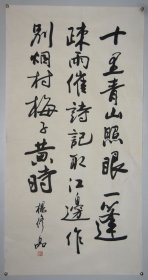 十里青山照眼一篷
疎雨催詩記取江邊作
別烟村梅子黄時